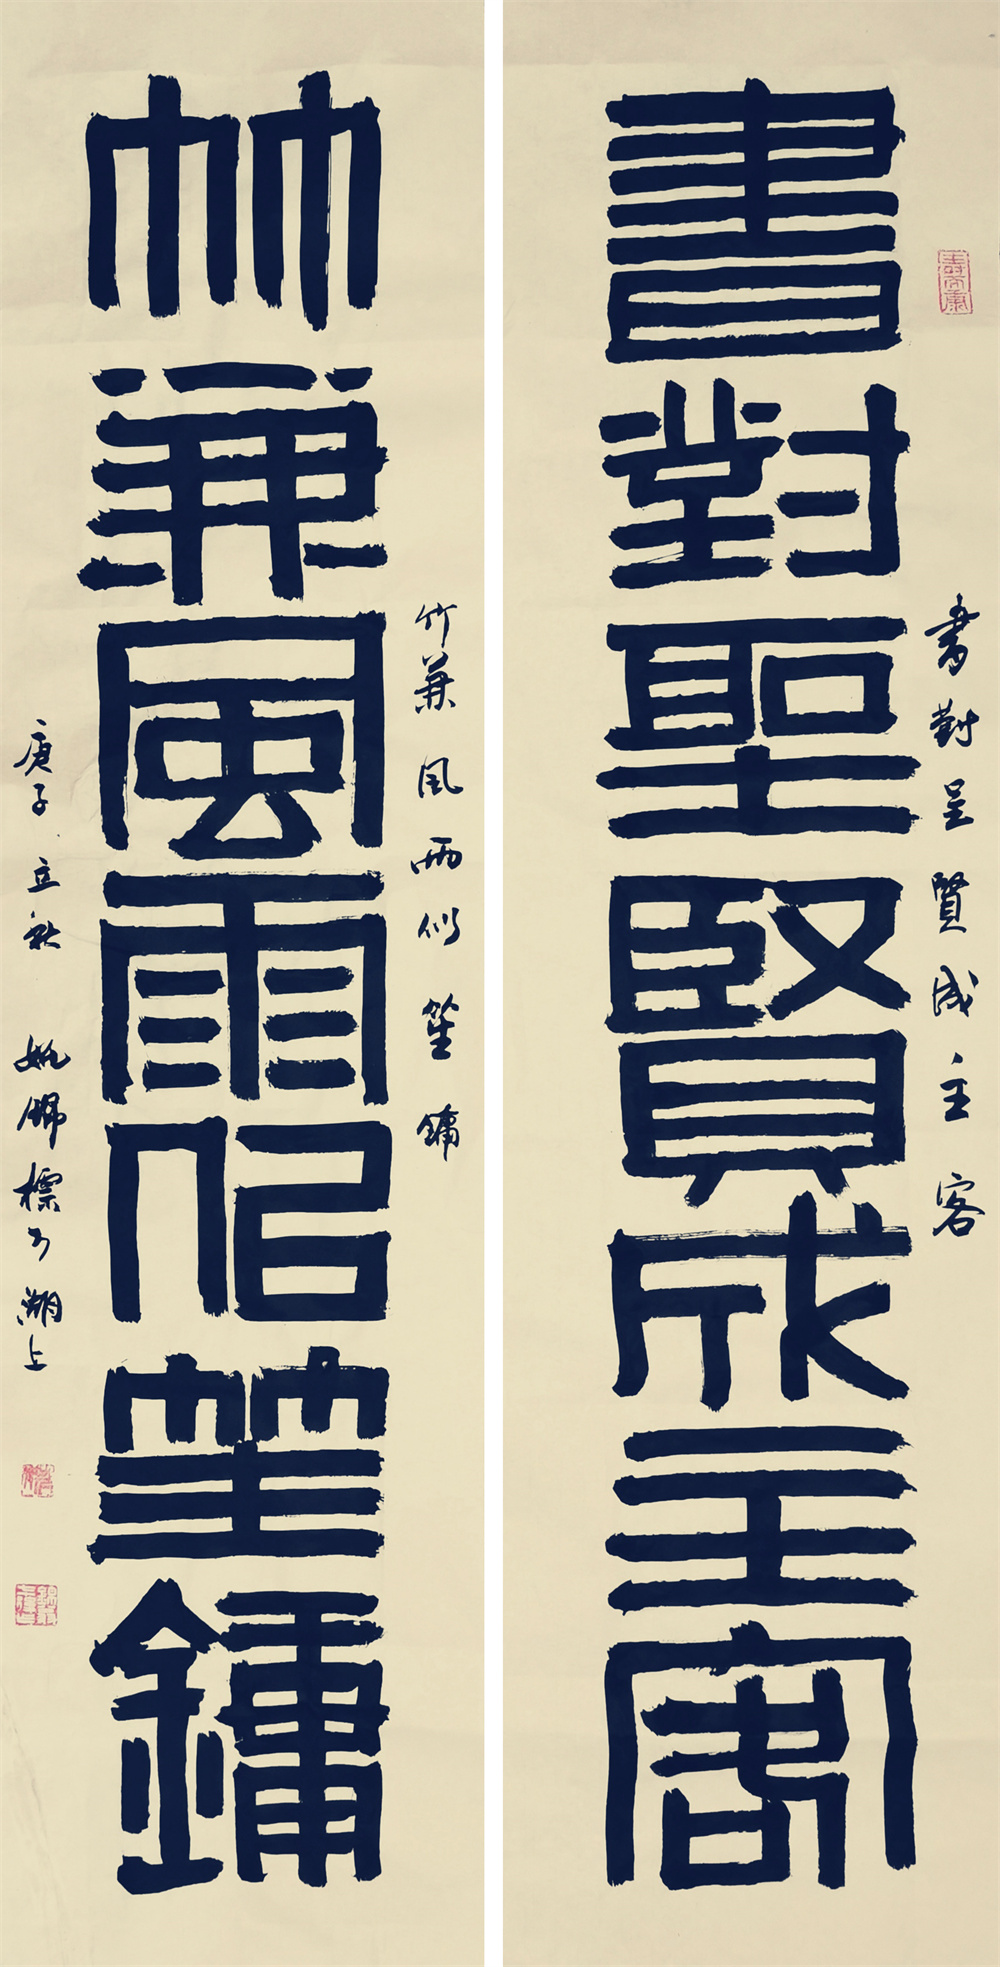 壽而康
書對聖賢成主客
書對聖賢成主客
竹兼風雨似笙鏞
竹兼風雨似笙鏞
庚子立秋 姚錦標於湖上